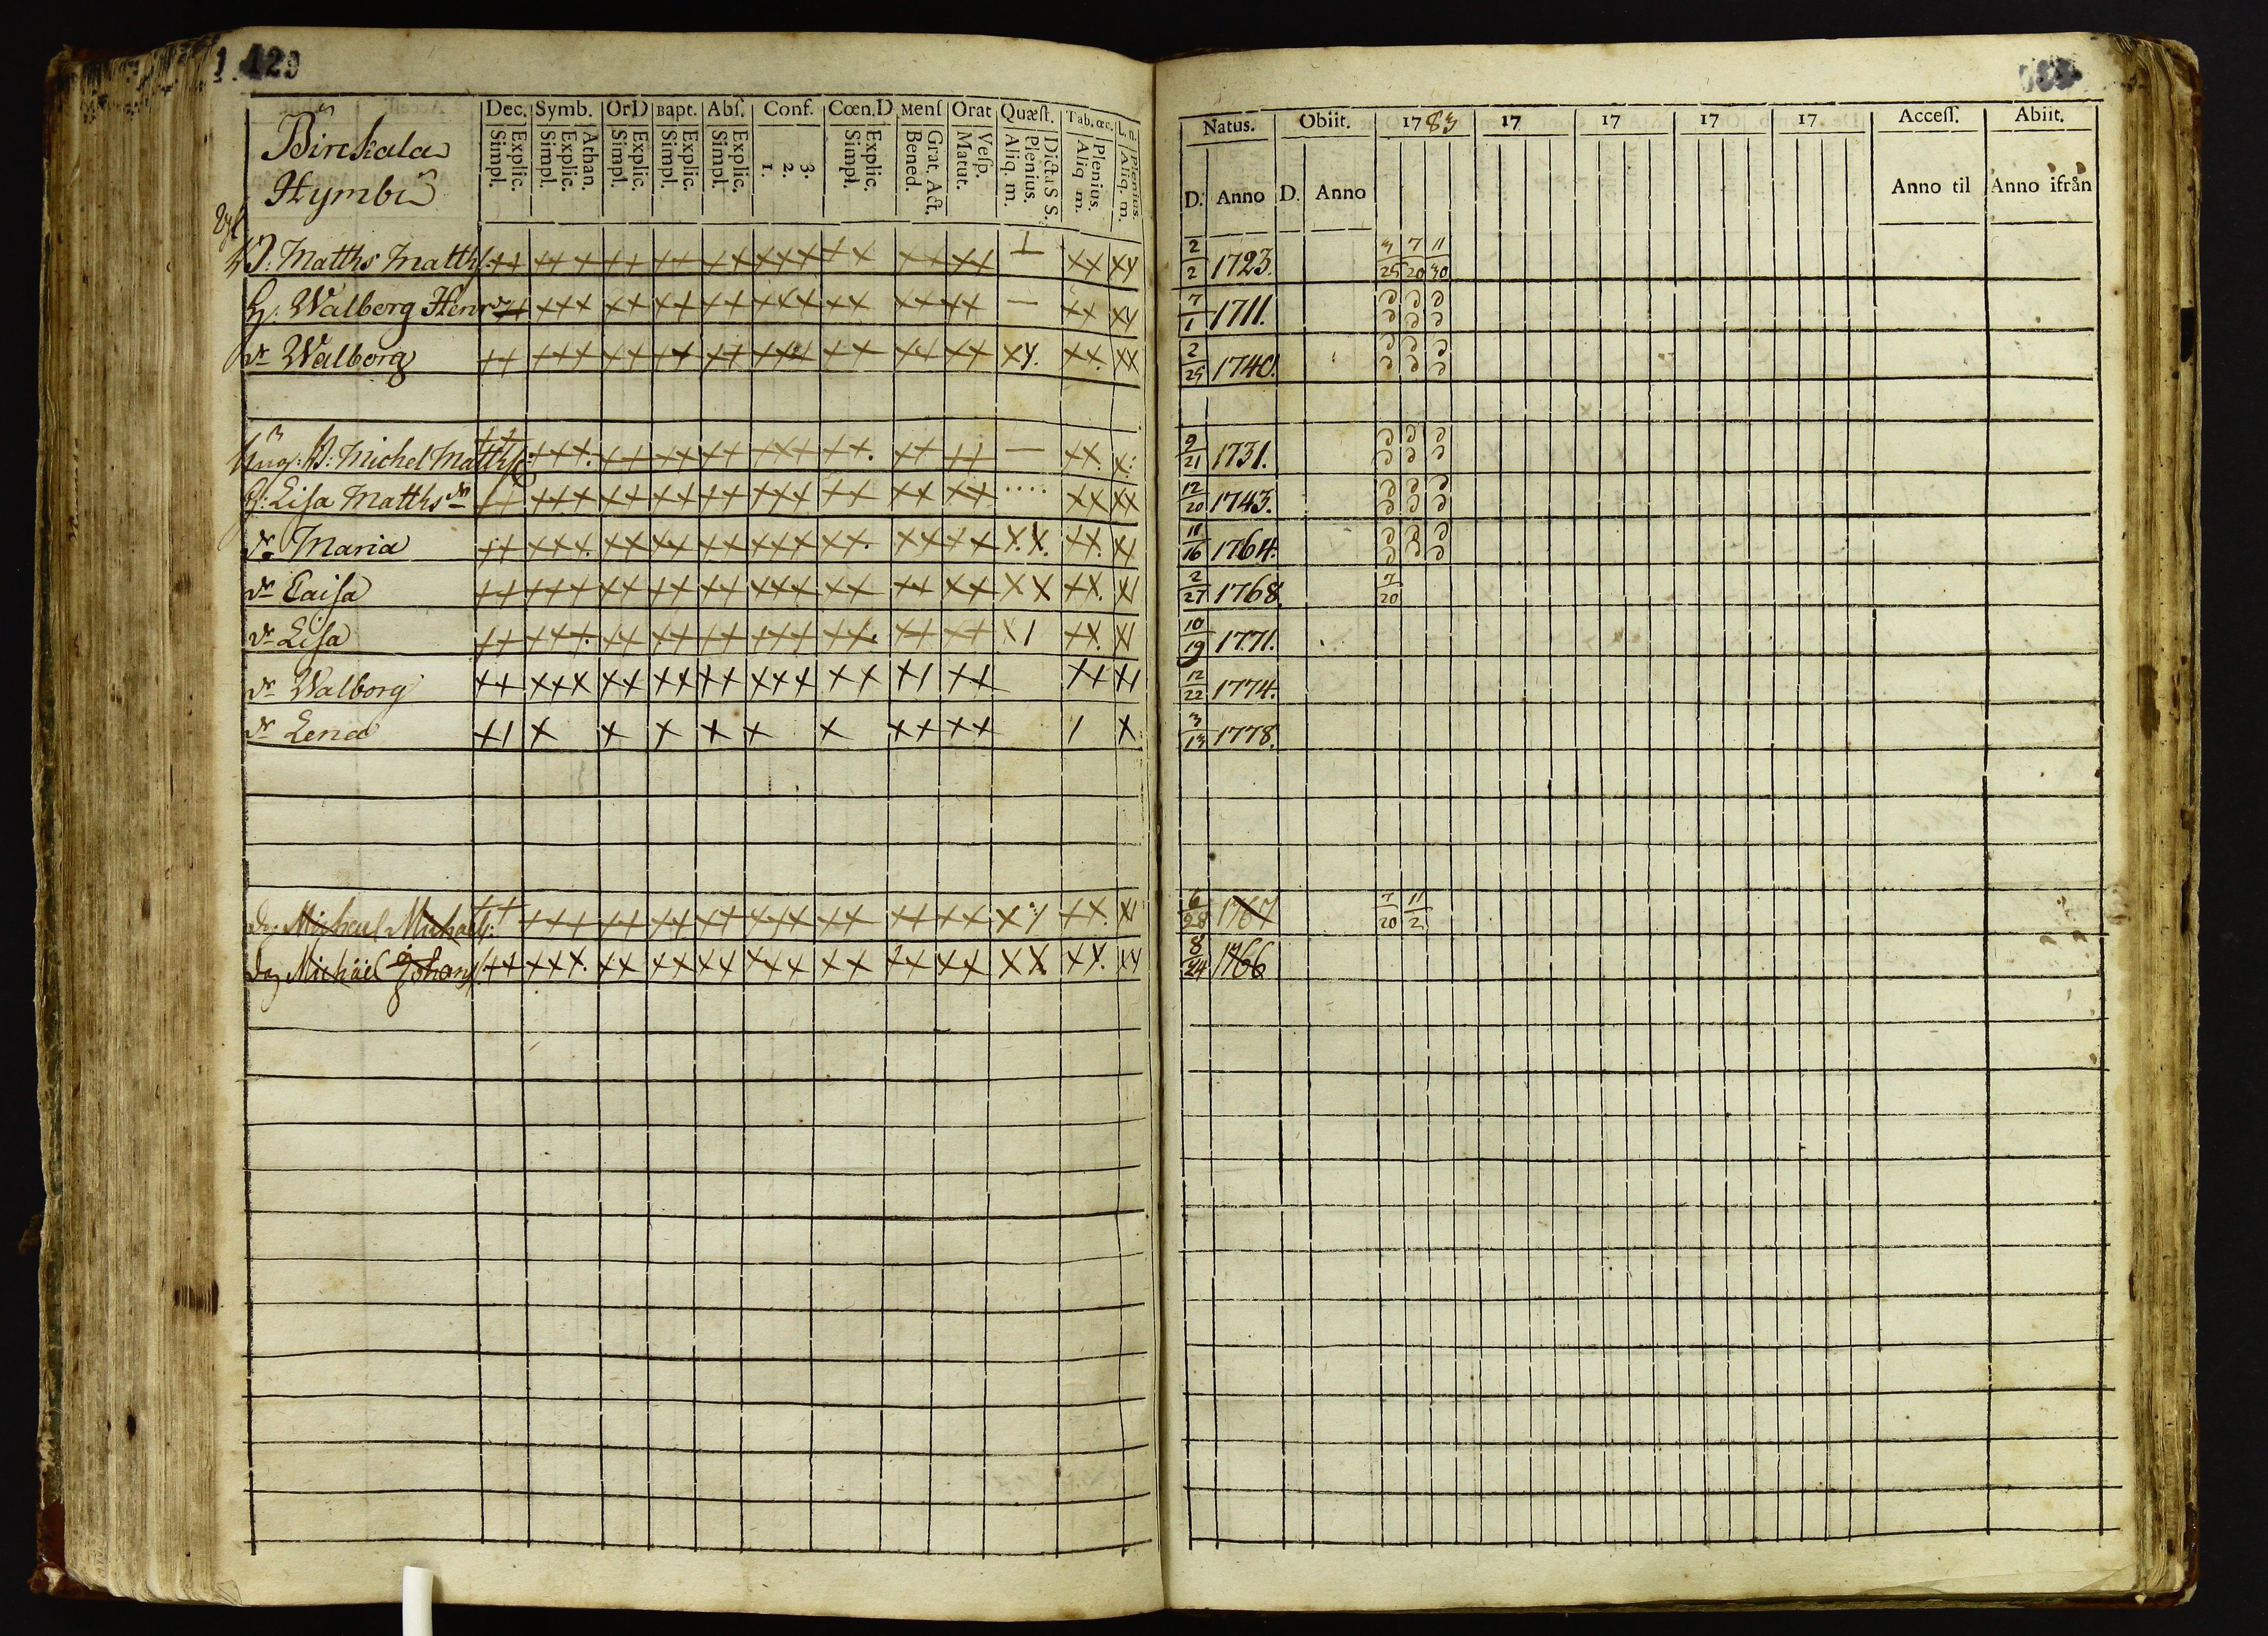 1 429
Birckala
Hymbi
Dec. Symb. Or.D Bapt. Abſ. Conf. Cœn.D Menſ Orat Quæſt. Tab. œc. L. n.
Explic. Simpl. Athan. Explic. Simpl. Explic. Simpl. Explic. Simpl. Explic. Simpl. 3. 2. 1. Explic. Simpl. Grat. Act. Bened. Veſp. Matut. Dicta S S. Plenius. Aliq. m. Plenius. Aliq. m. Plenius. Aliq. m.
Natus. Obiit. 1783 17 17 17 17 Acceſſ. Abiit.
D. Anno D. Anno Anno til Anno ifrån
Matths Matthſ: 2/2 1723. 25 20 30
H: Walborg Henr 7/1 1711.
dr Walborg 2/25 1740.
Michel Matthſ: 9/21 1731.
H: Liſa Matths dr 12/20 1743.
dr Maria 11/16 1764.
dr Caiſa 2/27 1768. 7/20
dr Liſa 10/19 1771.
dr Walborg 12/22 1774.
dr Lena 3/13 1778.
Dr. Micheal Michaelſ: 6/28 1767 7/20 11/2
Dr. Michäel Johanſ: 8/24 1766